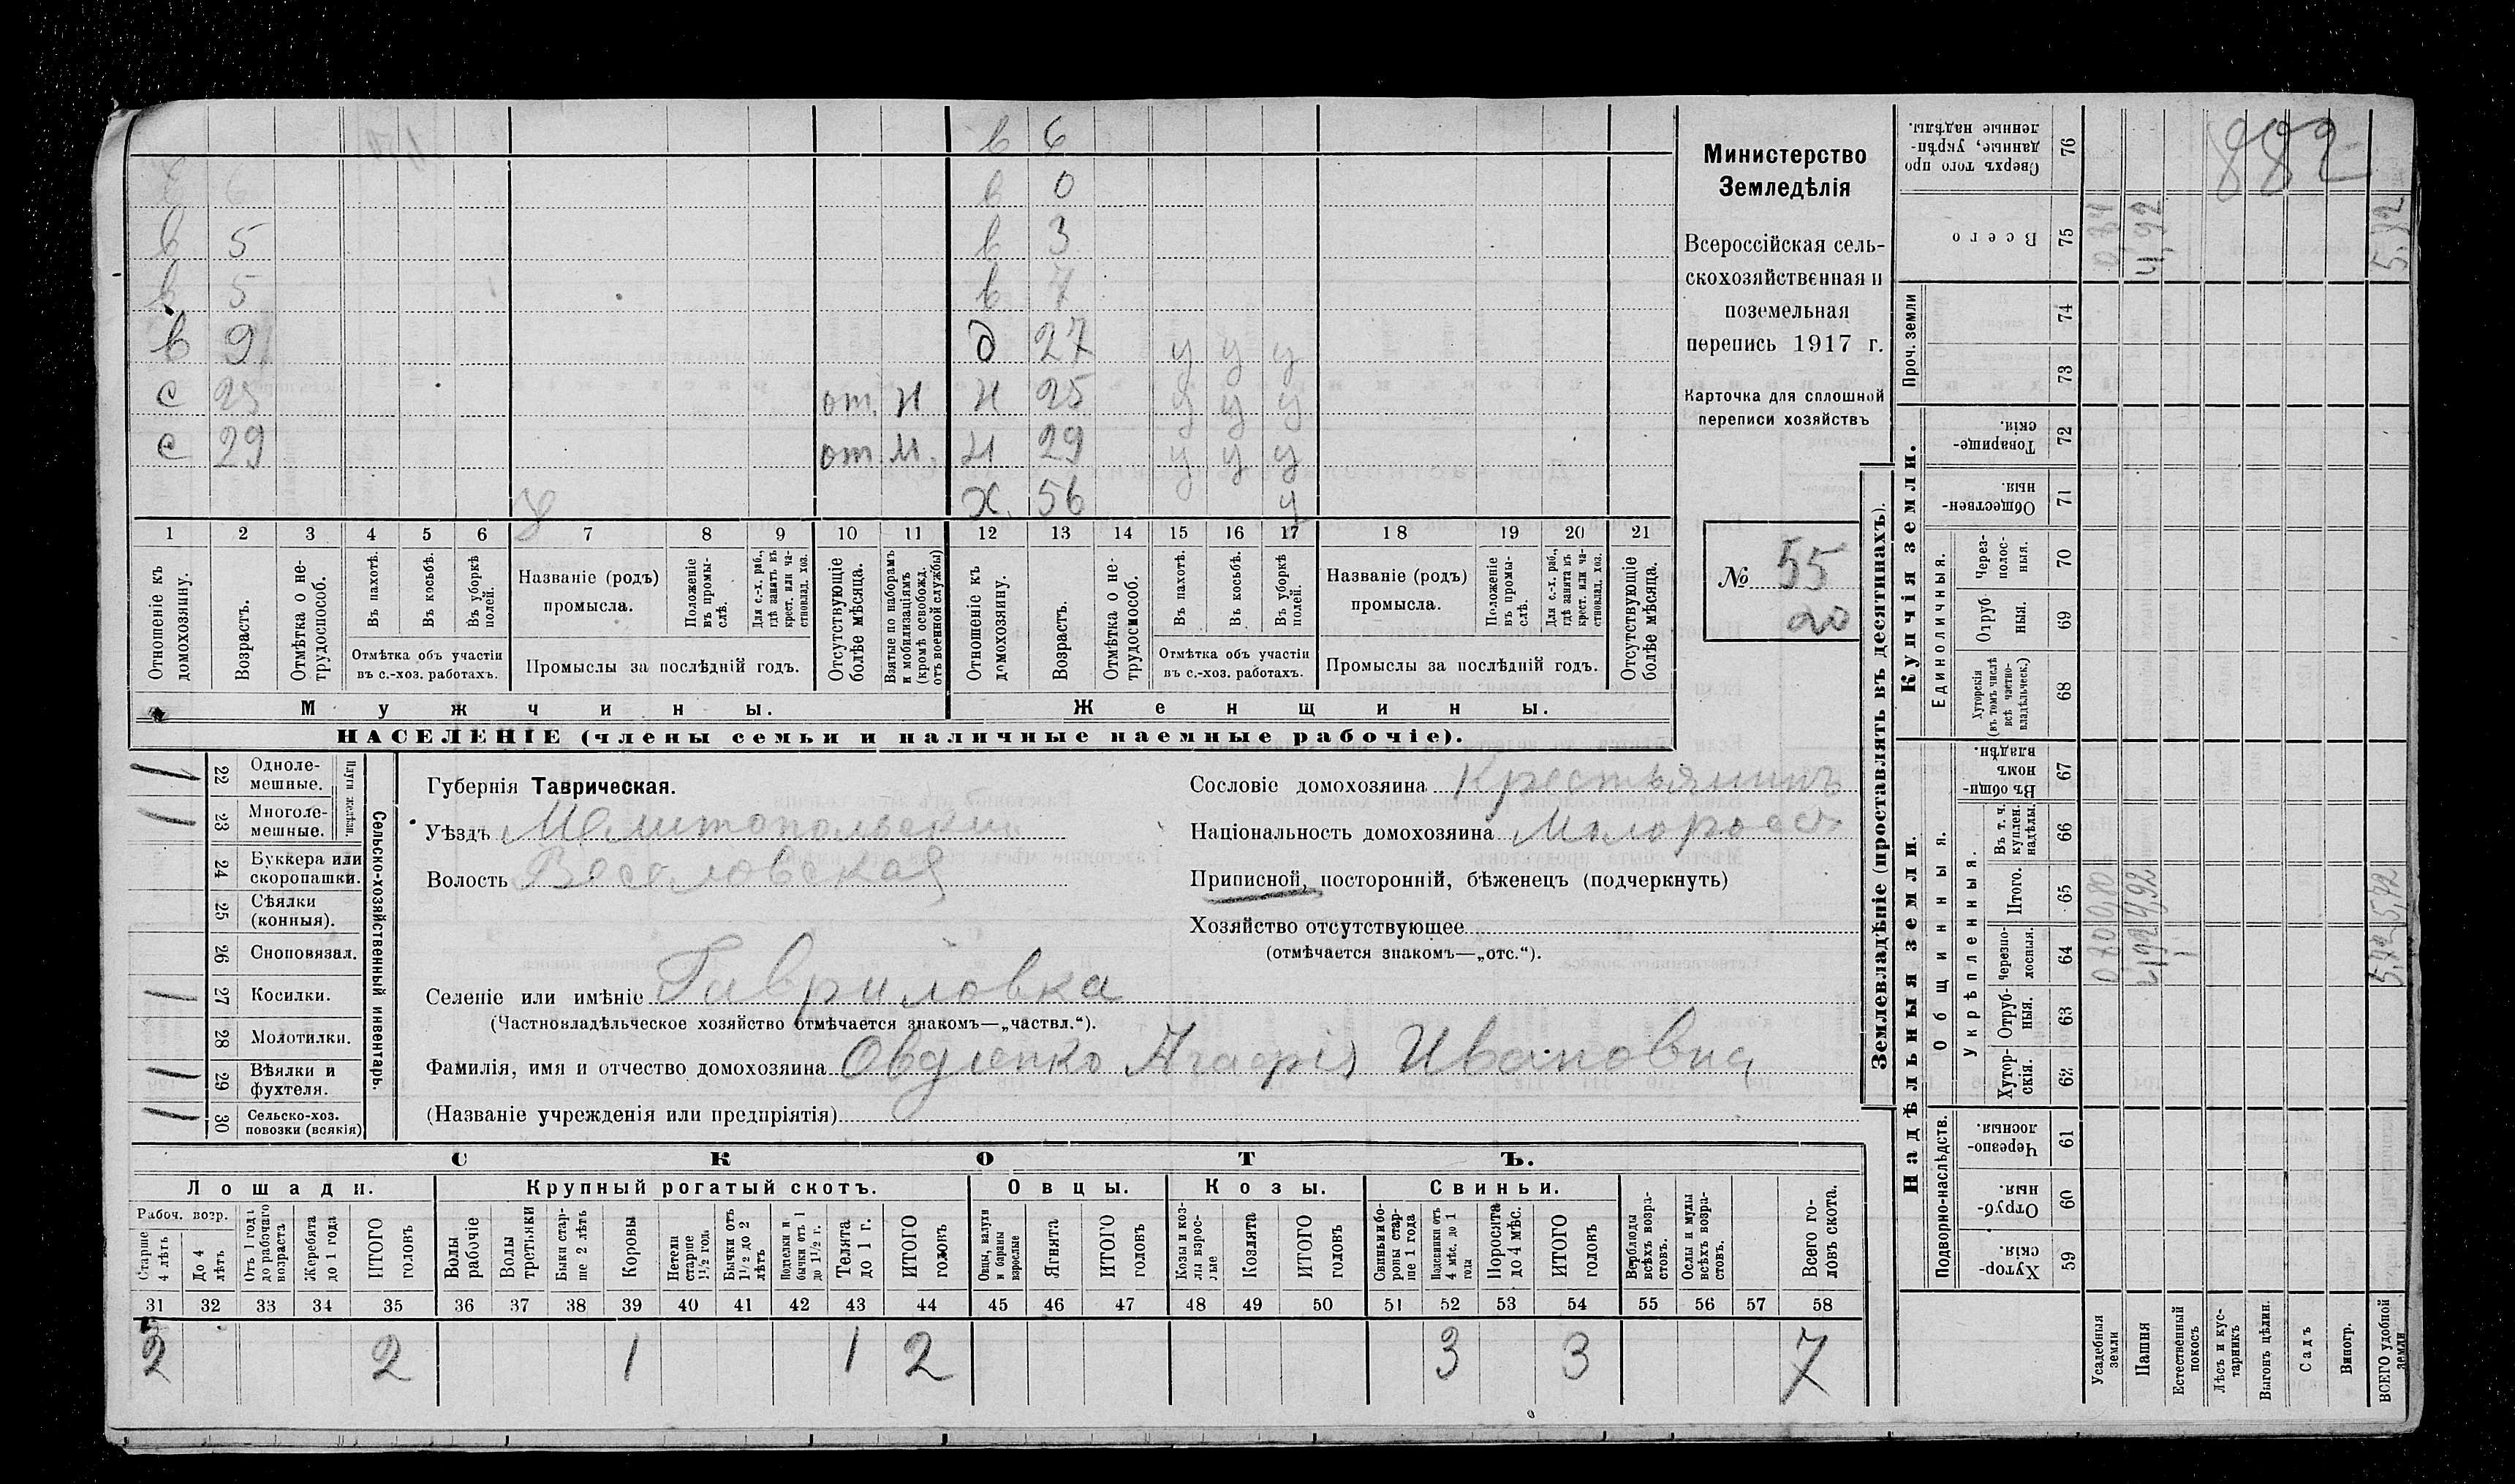 в 6
в 0
в 5 в 3
в 5 в 7
в 9 д 27 у у у
с 25 от. н н 25 у у у
с 29 от. н. н 29 у у у
х. 56 у
1 2 3 4 5 6 7 8 9 10 11 12 13 14 15 16 17 18 19 20 21
Отношеніе къ домохозяину.
Возрастъ.
Отмѣтка о не-трудоспособ.
Въ пахотѣ.
Въ косьбѣ.
Въ уборкѣ полей.
Отмѣтка объ участіи
въ с.-хоз. работахъ.
Названіе (родъ)
промысла.
Положеніе въ промы-слѣ.
Для с.-х. раб., гдѣ занятъ въ крест. или ча-стновлад. хоз.
Промыслы за послѣдній годъ.
Отсутствующіе болѣе мѣсяца.
Взятые по наборамъ и мобилизаціямъ (кромѣ освобожд. отъ военной службы)
Отношеніе къ домохозяину.
Возрастъ.
Отмѣтка о не-трудоспособ.
Въ пахотѣ.
Въ косьбѣ.
Въ уборкѣ полей.
Отмѣтка объ участіи
въ с.-хоз. работахъ.
Названіе (родъ)
промысла.
Положеніе въ промы-слѣ.
Для с.-х. раб., гдѣ занята въ крест. или ча-стновлад. хоз.
Промыслы за послѣдній годъ.
Отсутствующіе болѣе мѣсяца.
Мужчины. Женщины.
НАСЕЛЕНІЕ (члены семьи и наличные наемные рабочіе).
Министерство
Земледѣлія
Всероссійская сель-
скохозяйственная и
поземельная
перепись 1917 г.
Карточка для сплошной
переписи хозяйствъ
№ 55
20
Сельско-хозяйственный инвентарь.
Плуги желѣзн.
1 22 Одноле-мешные.
1 23 Многоле-мешные.
24 Буккера или скоропашки.
25 Сѣялки (конныя).
26 Сноповязал.
1 27 Косилки.
28 Молотилки.
1 29 Вѣялки и фухтеля.
1 30 Сельско-хоз. повозки (всякія)
Губернія Таврическая.
Уѣздъ Мелитопольскій
Волость Веселовская
Селеніе или имѣніе Гавриловка
(Частновладѣльческое хозяйство отмѣчается знакомъ—„частвл.“).
Фамилія, имя и отчество домохозяина Овдіенко Агафія Ивановна
(Названіе учрежденія или предпріятія)
Сословіе домохозяина Крестьянинъ
Національность домохозяина Малоросс.
Приписной, посторонній, бѣженецъ (подчеркнуть)
Хозяйство отсутствующее
(отмѣчается знакомъ—„отс.“).
СКОТЪ.
Лошади. Крупный рогатый скотъ. Овцы. Козы. Свиньи.
Рабоч. возр.
Старше 4 лѣтъ
До 4 лѣтъ
Отъ 1 года до рабочаго возраста
Жеребята до 1 года
ИТОГО головъ
Волы рабочіе
Волы третьяки
Быки стар-ше 2 лѣтъ
Коровы
Нетели старше 1½ год.
Бычки отъ 1½ до 2 лѣтъ
Подтелки и бычки отъ 1 до 1½ г.
Телята до 1 г.
ИТОГО головъ
Овцы, валухи и бараны взрослые
Ягнята
ИТОГО головъ
Козы и коз-лы взрос-лые
Козлята
ИТОГО головъ
Свиньи и бо-ровы стар-ше 1 года
Подсвинки отъ 4 мѣс. до 1 года
Поросята до 4 мѣс.
ИТОГО головъ
Верблюды всѣхъ возра-стовъ.
Ослы и мулы всѣхъ возра-стовъ.
Всего го-ловъ скота.
31 32 33 34 35 36 37 38 39 40 41 42 43 44 45 46 47 48 49 50 51 52 53 54 55 56 57 58
2 2 1 1 2 3 3 7
Землевладѣніе (проставлять въ десятинахъ).
Надѣльныя земли. Купчія земли. Проч. земли
Подворно-наслѣдств.
Общинныя.
Укрѣпленныя.
Единоличныя.
Хутор-скія. 59
Отруб-ныя. 60
Черезпо-лосныя. 61
Хутор-скія. 62
Отруб-ныя. 63
Черезпо-лосныя. 64
Итого. 65
Въ т. ч. куплен. надѣлы. 66
Въ общин-номъ владѣн. 67
Хуторскія (въ томъ числѣ всѣ частно-владѣльческ.) 68
Отруб-ныя. 69
Через-полос-ныя. 70
Обществен-ныя. 71
Товарище-скія. 72
73
74
Всего 75
Сверхъ того про-данные, укрѣп-ленные надѣлы. 76
Усадебныя земли 0,80 0,80
Пашня 4,92 4,92 4,92
Естественный покосъ
Лѣсъ и кус-тарникъ
Выгонъ цѣлин.
Садъ
Виногр.
ВСЕГО удобной земли 5,72 5,72 5,72
882